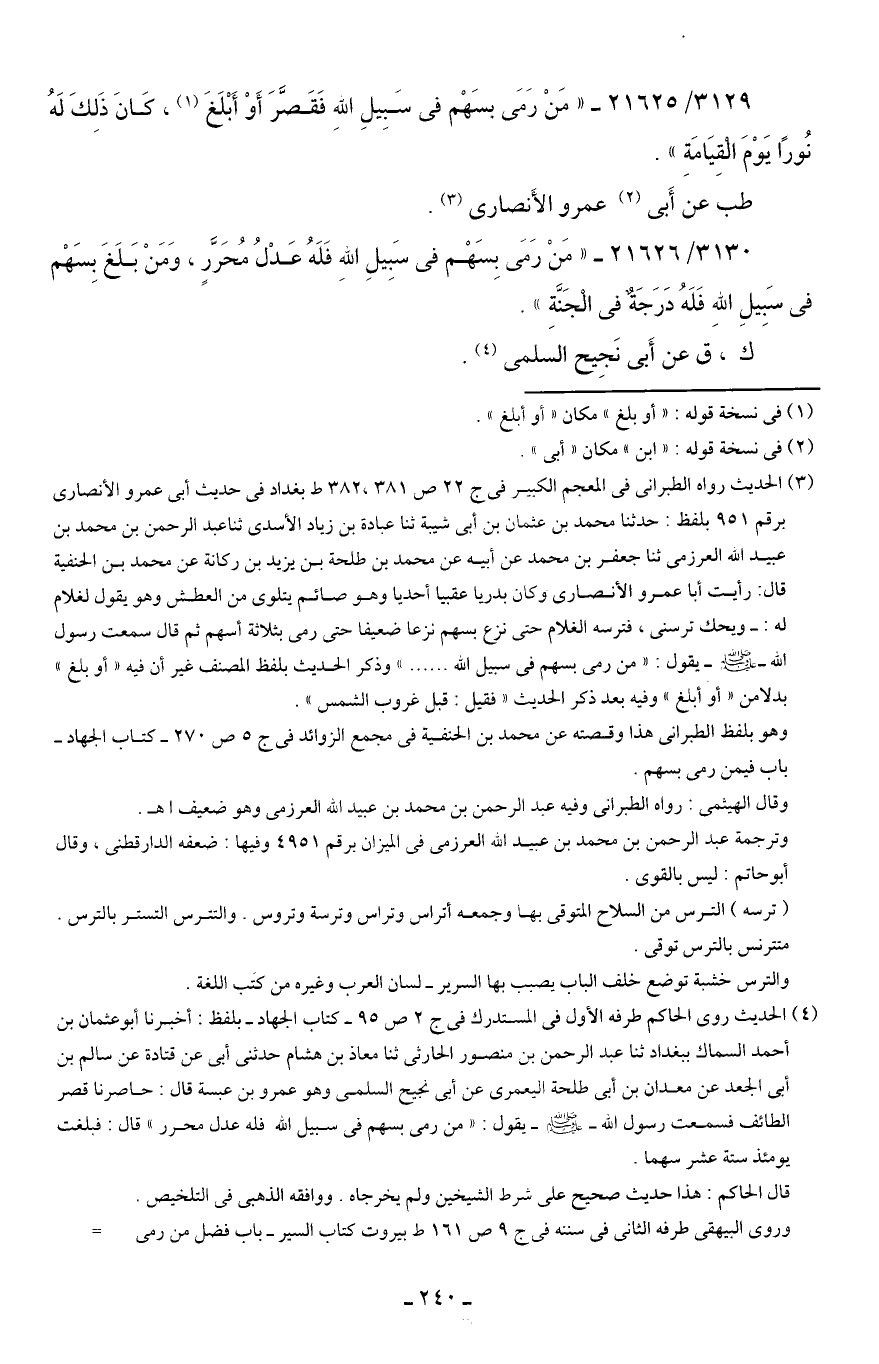 ٣١٢٩/ ٢١٦٢٥ ـ « مَنْ رَمَى بسَهْم فى سَبِيلِ الله فَقَصَّرَ أَوْ أَبْلَغَ (١) ، كَانَ ذَلِكَ لَهُ
نُورًا يَوْمَ الْقِيَامَةِ » .
طب عن أَبى (٢) عمرو الأَنصارى (٣) .
٣١٣٠/ ٢١٦٢٦ ـ « مَنْ رَمَى بِسَهْم فى سَبِيلِ اللهِ فَلَهُ عَدْلُ مُحَرَّرٍ ، وَمَنْ بَلَغَ بِسَهْم
فى سَبِيلِ اللهِ فَلَهُ دَرَجَةٌ فى الْجَنَّةِ » .
ك ، ق عن أَبى نَجِيح السلمى (٤) .
(١) فى نسخة قوله : « أو بلغ » مكان « أو أبلغ » .
(٢) فى نسخة قوله : « ابن » مكان « أبى » .
(٣) الحديث رواه الطبرانى فى المعجم الكبير فى ج ٢٢ ص ٣٨١ ،٣٨٢ ط بغداد فى حديث أبى عمرو الأنصارى
برقم ٩٥١ بلفظ : حدثنا محمد بن عثمان بن أبى شيبة ثنا عبادة بن زياد الأسدى ثناعبد الرحمن بن محمد بن
عبيد الله العرزمى ثنا جعفر بن محمد عن أبيه عن محمد بن طلحة بن يزيد بن ركانة عن محمد بن الحنفية
قال: رأيت أبا عمرو الأنصارى وكان بدريا عقبيا أحديا وهو صائم يتلوى من العطش وهو يقول لغلام
له : ـ ويحك ترسنى ، فترسه الغلام حتى نزع بسهم نزعا ضعيفا حتى رمى بثلاثة أسهم ثم قال سمعت رسول
الله ـ ﷺ ـ يقول : « من رمى بسهم فى سبيل الله ...... » وذكر الحديث بلفظ المصنف غير أن فيه « أو بلغ »
بدلامن « أو أبلغ » وفيه بعد ذكر الحديث « فقيل : قبل غروب الشمس » .
وهو بلفظ الطبرانى هذا وقصته عن محمد بن الحنفية فى مجمع الزوائد فى ج ٥ ص ٢٧٠ ـ كتاب الجهاد ـ
باب فيمن رمى بسهم .
وقال الهيثمى : رواه الطبرانى وفيه عبد الرحمن بن محمد بن عبيد الله العرزمى وهو ضعيف ا هـ .
وترجمة عبد الرحمن بن محمد بن عبيد الله العرزمى فى الميزان برقم ٤٩٥١ وفيها : ضعفه الدارقطنى ، وقال
أبوحاتم : ليس بالقوى .
( ترسه ) الترس من السلاح المتوقى بها وجمعه أتراس وتراس وترسة وتروس . والتترس التستر بالترس .
متترنس بالترس توقى .
والترس خشبة توضع خلف الباب يصبب بها السرير ـ لسان العرب وغيره من كتب اللغة .
(٤) الحديث روى الحاكم طرفه الأول فى المستدرك فى ج ٢ ص ٩٥ ـ كتاب الجهاد ـ بلفظ : أخبرنا أبوعثمان بن
أحمد السماك ببغداد ثنا عبد الرحمن بن منصور الحارثى ثنا معاذ بن هشام حدثنى أبى عن قتادة عن سالم بن
أبى الجعد عن معدان بن أبى طلحة اليعمرى عن أبى نجيح السلمى وهو عمرو بن عبسة قال : حاصرنا قصر
الطائف فسمعت رسول الله ـ ﷺ ـ يقول : « من رمى بسهم فى سبيل الله فله عدل محرر » قال : فبلغت
يومئذ ستة عشر سهما .
قال الحاكم : هذا حديث صحيح على شرط الشيخين ولم يخرجاه . ووافقه الذهبى فى التلخيص .
وروى البيهقى طرفه الثانى فى سننه فى ج ٩ ص ١٦١ ط بيروت كتاب السير ـ باب فضل من رمى =
ـ ٢٤٠ ـ